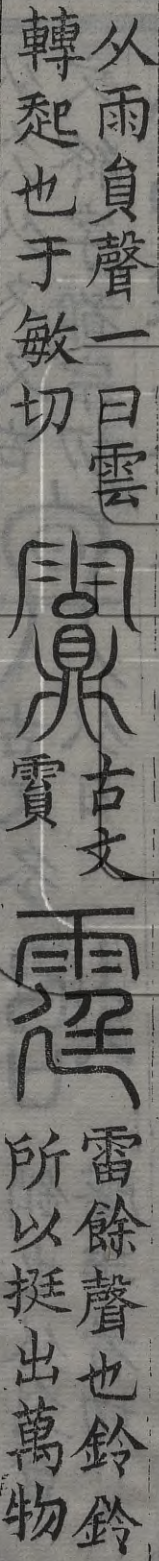 从雨員聲一曰雲
轉起也于敏切
䨶
古文
霣
霆
雷餘聲也鈴鈴
所以挺出萬物